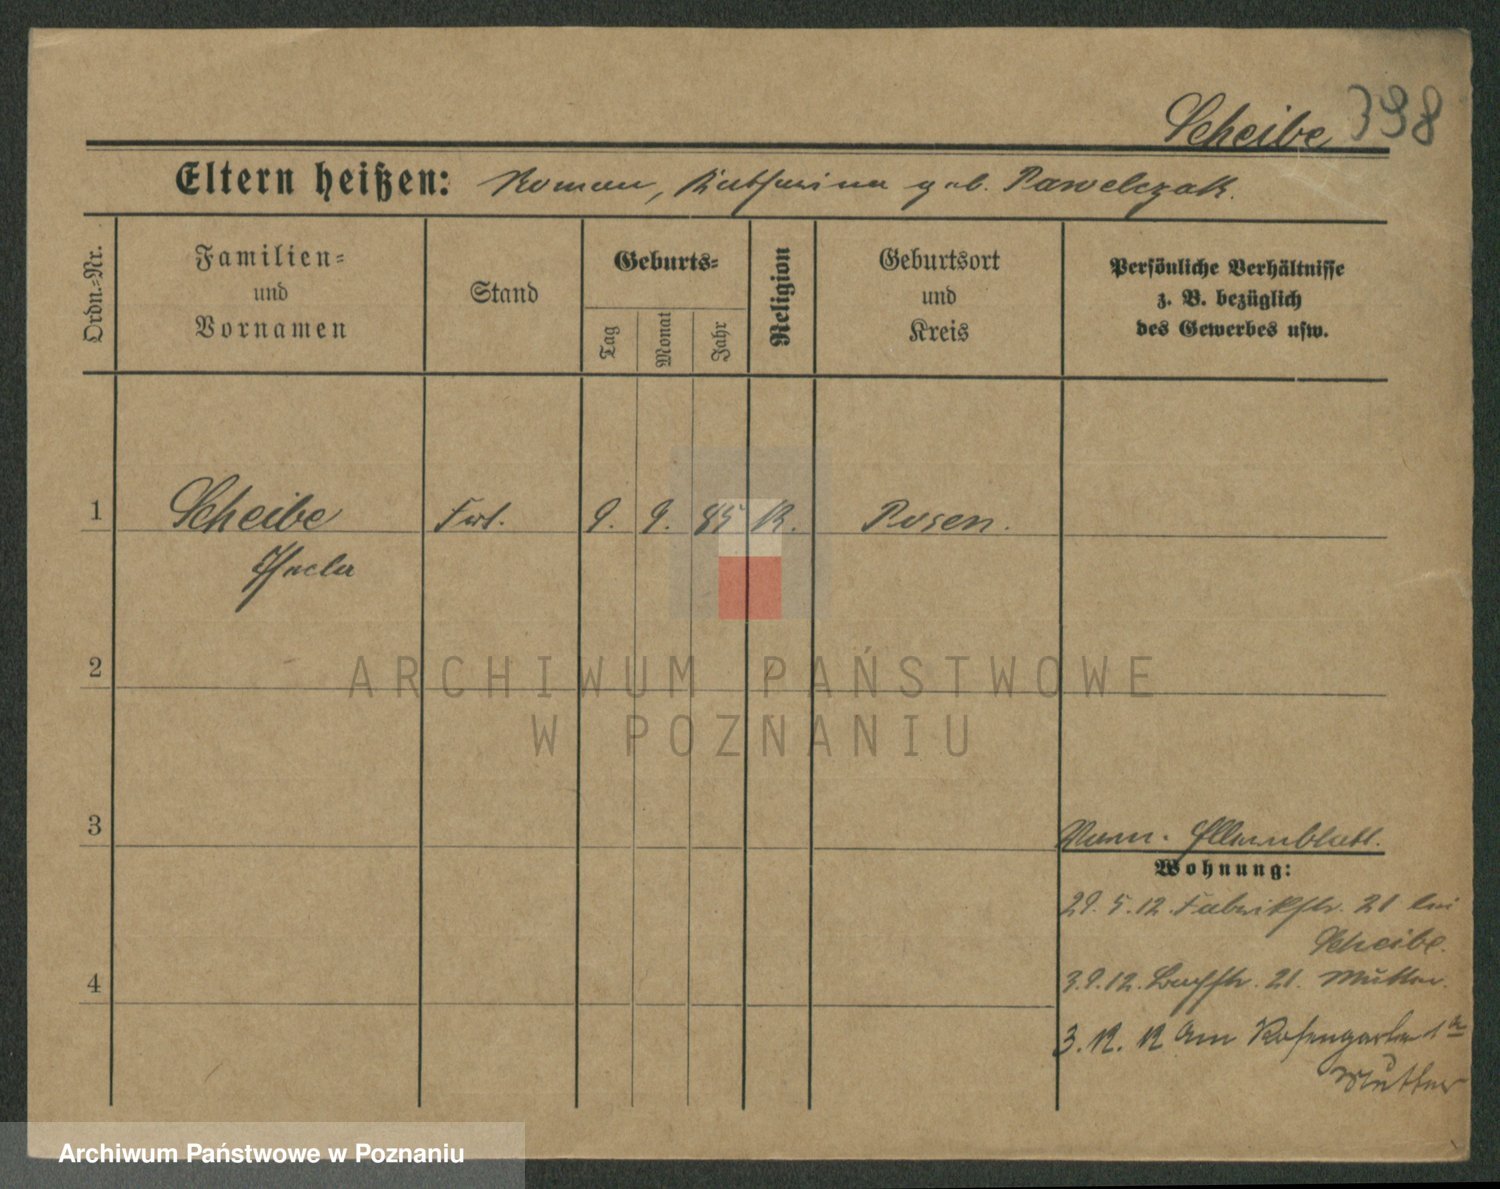 Scheibe 398
Eltern heißen: Roman, Katharina geb. Pawelczak.
Ordn.-Nr.
Familien-
und
Vornamen
Stand
Geburts-
Tag
Monat
Jahr
Religion
Geburtsort
und
Kreis
Persönliche Verhältnisse
z. B. bezüglich
des Gewerbes usw.
1 Scheibe 9. 9. 85 K. Posen.
2
3
Wohnung:
29. 5. 12. Fabrikstr. 21 bei
Scheibe.
4
3.9.12. 21. Mutter.
3. 12. 12 Am Rosengarten 1a
Mutter
ARCHIWUM PAŃSTWOWE
W POZNANIU
Archiwum Państwowe w Poznaniu